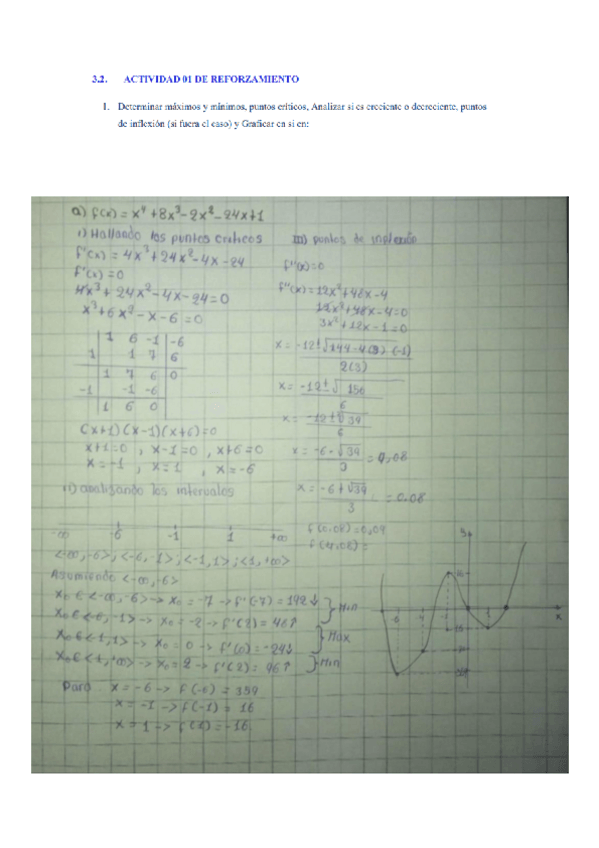 3.2. ACTIVIDAD 01 DE REFORZAMIENTO
1. Determinar máximos y mínimos, puntos críticos, Analizar si es creciente o decreciente, puntos
de inflexión (si fuera el caso) y Graficar en si en:
a) f(x) = x⁴ + 8x³ - 2x² - 24x + 1
i) Hallando los puntos criticos
f'(x) = 4x³ + 24x² - 4x - 24
f'(x) = 0
4x³ + 24x² - 4x - 24 = 0
x³ + 6x² - x - 6 = 0
1 6 -1 -6
1 1 7 6
1 7 6 0
-1 -1 -6
1 6 0
(x+1)(x-1)(x+6) = 0
x+1=0 , x-1=0 , x+6=0
x=-1 , x=1 , x=-6
ii) analizando los intervalos
-∞ -6 -1 1 +∞
<-∞,-6>; <-6,-1>; <-1,1>; <1,+∞>
Asumiendo <-∞,-6>
x₀ ∈ <-∞,-6> -> x₀ = -7 -> f'(-7) = 192↓
x₀ ∈ <-6,-1> -> x₀ = -2 -> f'(2) = 46↑
x₀ ∈ <-1,1> -> x₀ = 0 -> f'(0) = -24↓
x₀ ∈ <1,+∞> -> x₀ = 2 -> f'(2) = 96↑
} Min
} Max
} Min
Para x = -6 -> f(-6) = 359
x = -1 -> f(-1) = 16
x = 1 -> f(1) = -16
III) puntos de inflexión
f''(x) = 0
f''(x) = 12x² + 48x - 4
12x² + 48x - 4 = 0
3x² + 12x - 1 = 0
x = -12 ± √144 - 4(3)·(-1)
2(3)
x = -12 ± √156
6
x = -12 ± √39
6
x = -6 - √39
3
x = -6 + √39 = 0.08
3
f(0,08) = 0,09
y
16
-6 -4 1 x